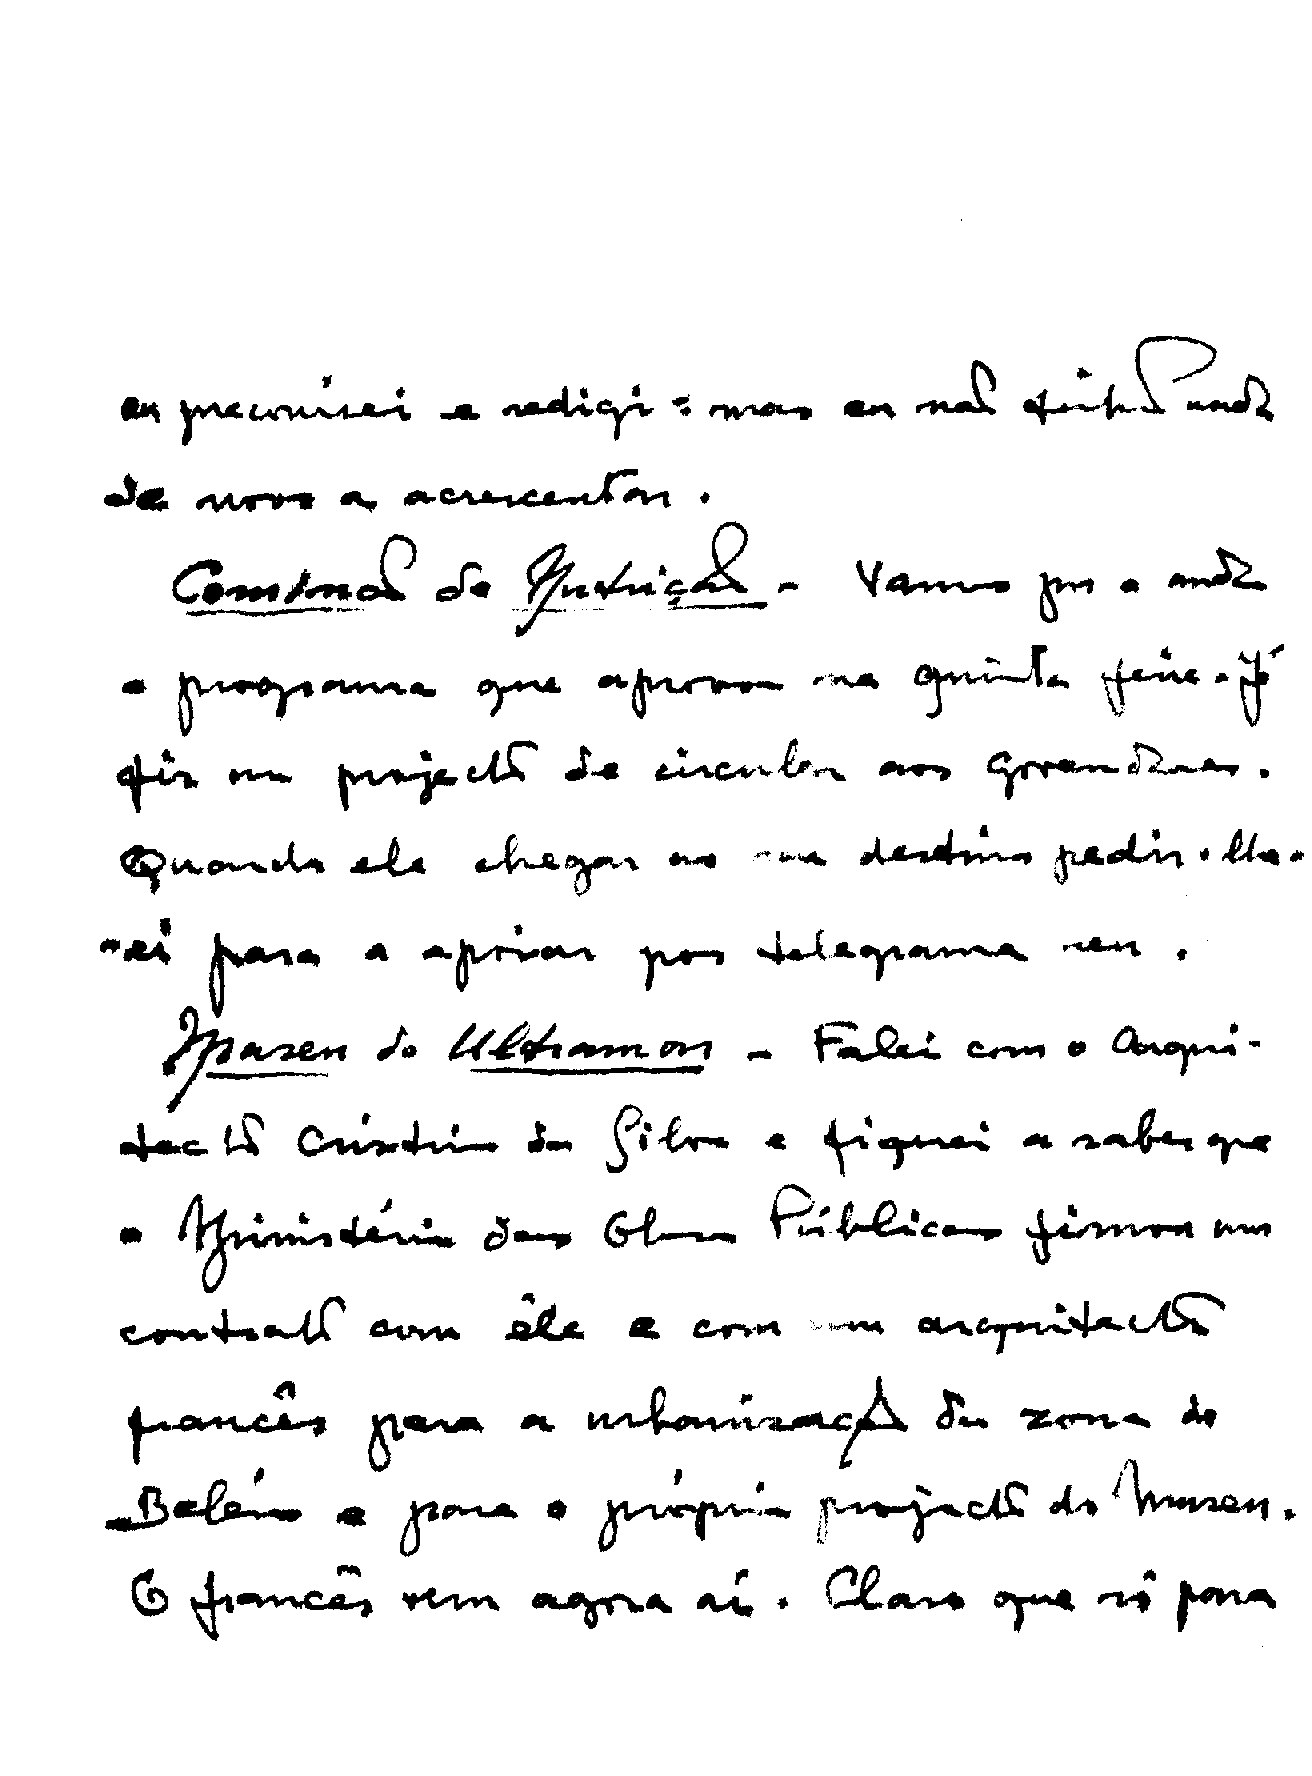 eu preconisei e redigi: mas eu não tinha nada
de novo a acrescentar.
Comissão de Nutrição - Vamos pôr a andar
o programa que aprovou na quinta feira. Já
fiz um projecto de circular aos Governadores.
Quando ele chegar ao seu destino pedir-lhe-
-ei para a apoiar por telegrama seu.
Museu do Ultramar - Falei com o Arqui-
tecto Cristino da Silva e fiquei a saber que
o Ministério das Obras Públicas firmou um
contrato com êle e com um arquitecto
francês para a urbanização da zona de
Belém e para o próprio projecto do Museu.
O francês vem agora aí. Claro que só para